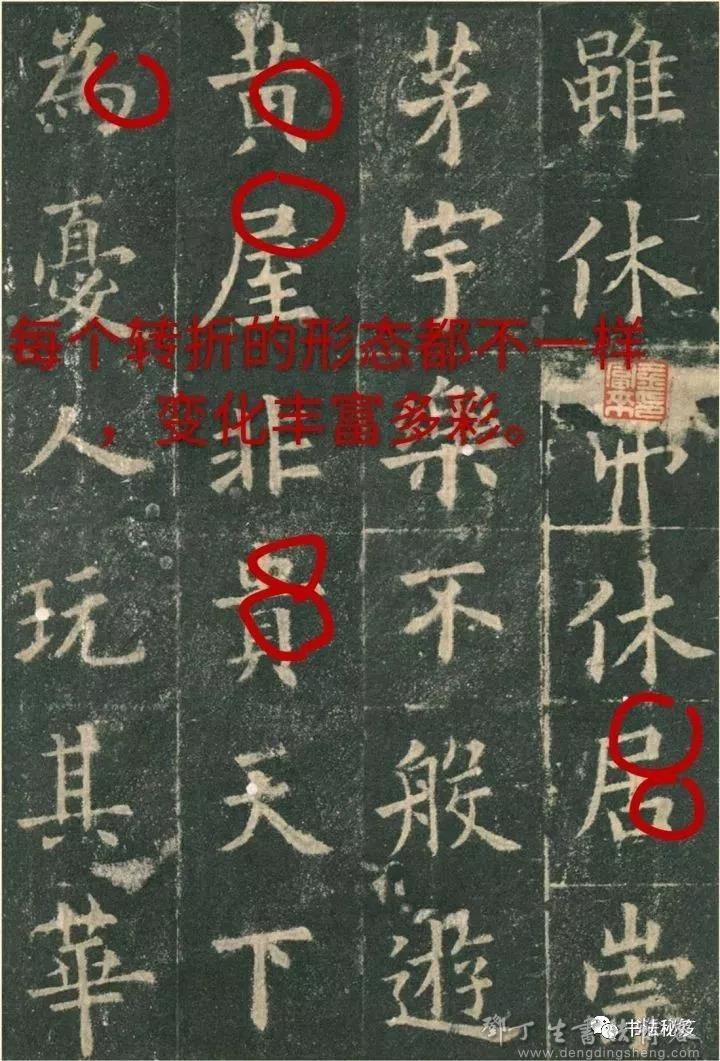 雖休休居崇
茅宇樂不般遊
黃屋非貴天下
為憂人玩其華
每个转折的形态都不一样
，变化丰富多彩。
书法秘笈
www.dengdingsheng.com